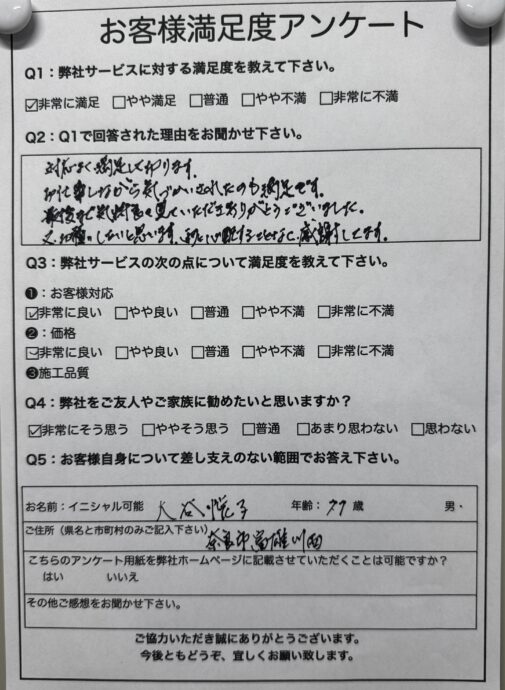 お客様満足度アンケート
Q1：弊社サービスに対する満足度を教えて下さい。
☑非常に満足 □やや満足 □普通 □やや不満 □非常に不満
Q2：Q1で回答された理由をお聞かせ下さい。
対応よく満足しております。
お仕事しながら気づかいされたのも満足です。
最後まで気持良く見ていただきありがとうございました。
又お願いしたいと思います。 感謝してます。
Q3：弊社サービスの次の点について満足度を教えて下さい。
❶：お客様対応
☑非常に良い □やや良い □普通 □やや不満 □非常に不満
❷：価格
☑非常に良い □やや良い □普通 □やや不満 □非常に不満
❸施工品質
Q4：弊社をご友人やご家族に勧めたいと思いますか？
☑非常にそう思う □ややそう思う □普通 □あまり思わない □思わない
Q5：お客様自身について差し支えのない範囲でお答え下さい。
お名前：イニシャル可能 大谷悦子 年齢：77歳 男・
ご住所（県名と市町村のみご記入下さい） 奈良市富雄川西
こちらのアンケート用紙を弊社ホームページに記載させていただくことは可能ですか？
はい いいえ
その他ご感想をお聞かせ下さい。
ご協力いただき誠にありがとうございます。
今後ともどうぞ、宜しくお願い致します。